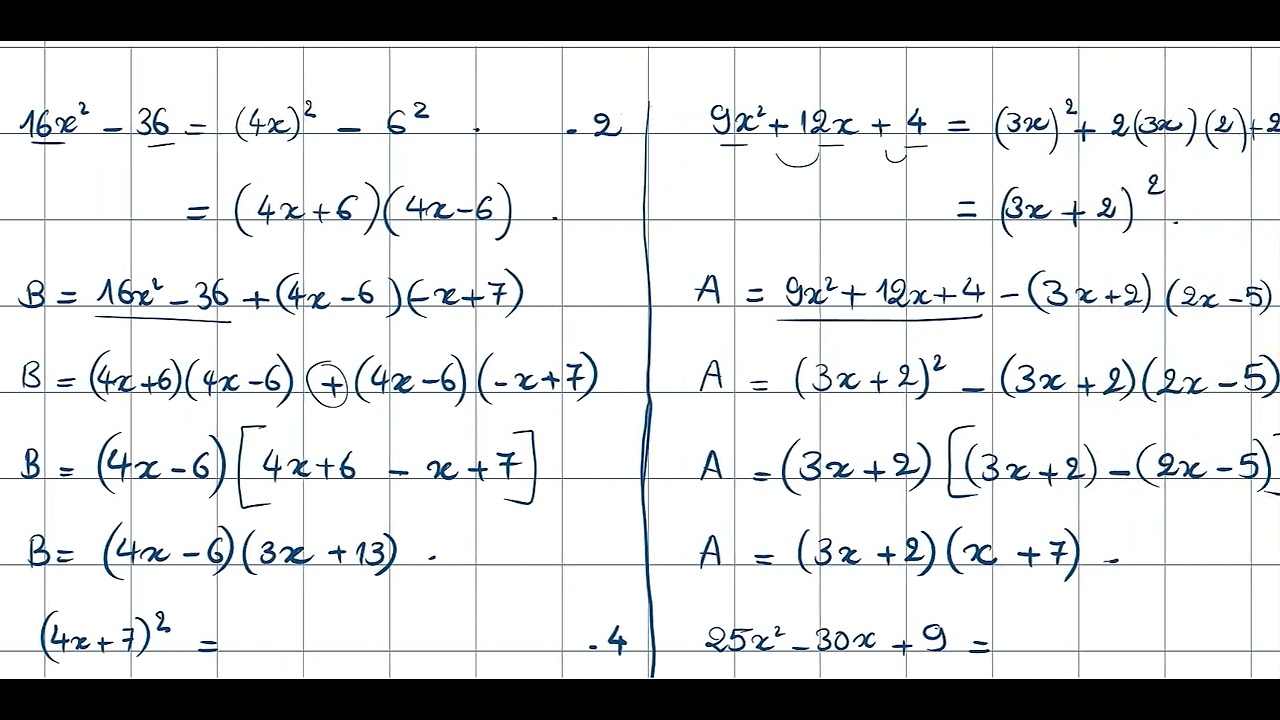 16x² - 36 = (4x)² - 6² . .2
= (4x+6)(4x-6) .
B = 16x² - 36 + (4x-6)(-x+7)
B = (4x+6)(4x-6) + (4x-6)(-x+7)
B = (4x-6)[4x+6 - x+7]
B = (4x-6)(3x+13) .
(4x+7)² = .4
9x² + 12x + 4 = (3x)² + 2(3x)(2)+2
= (3x+2)² .
A = 9x² + 12x + 4 - (3x+2)(2x-5)
A = (3x+2)² - (3x+2)(2x-5)
A = (3x+2)[(3x+2) - (2x-5)]
A = (3x+2)(x+7) .
25x² - 30x + 9 =